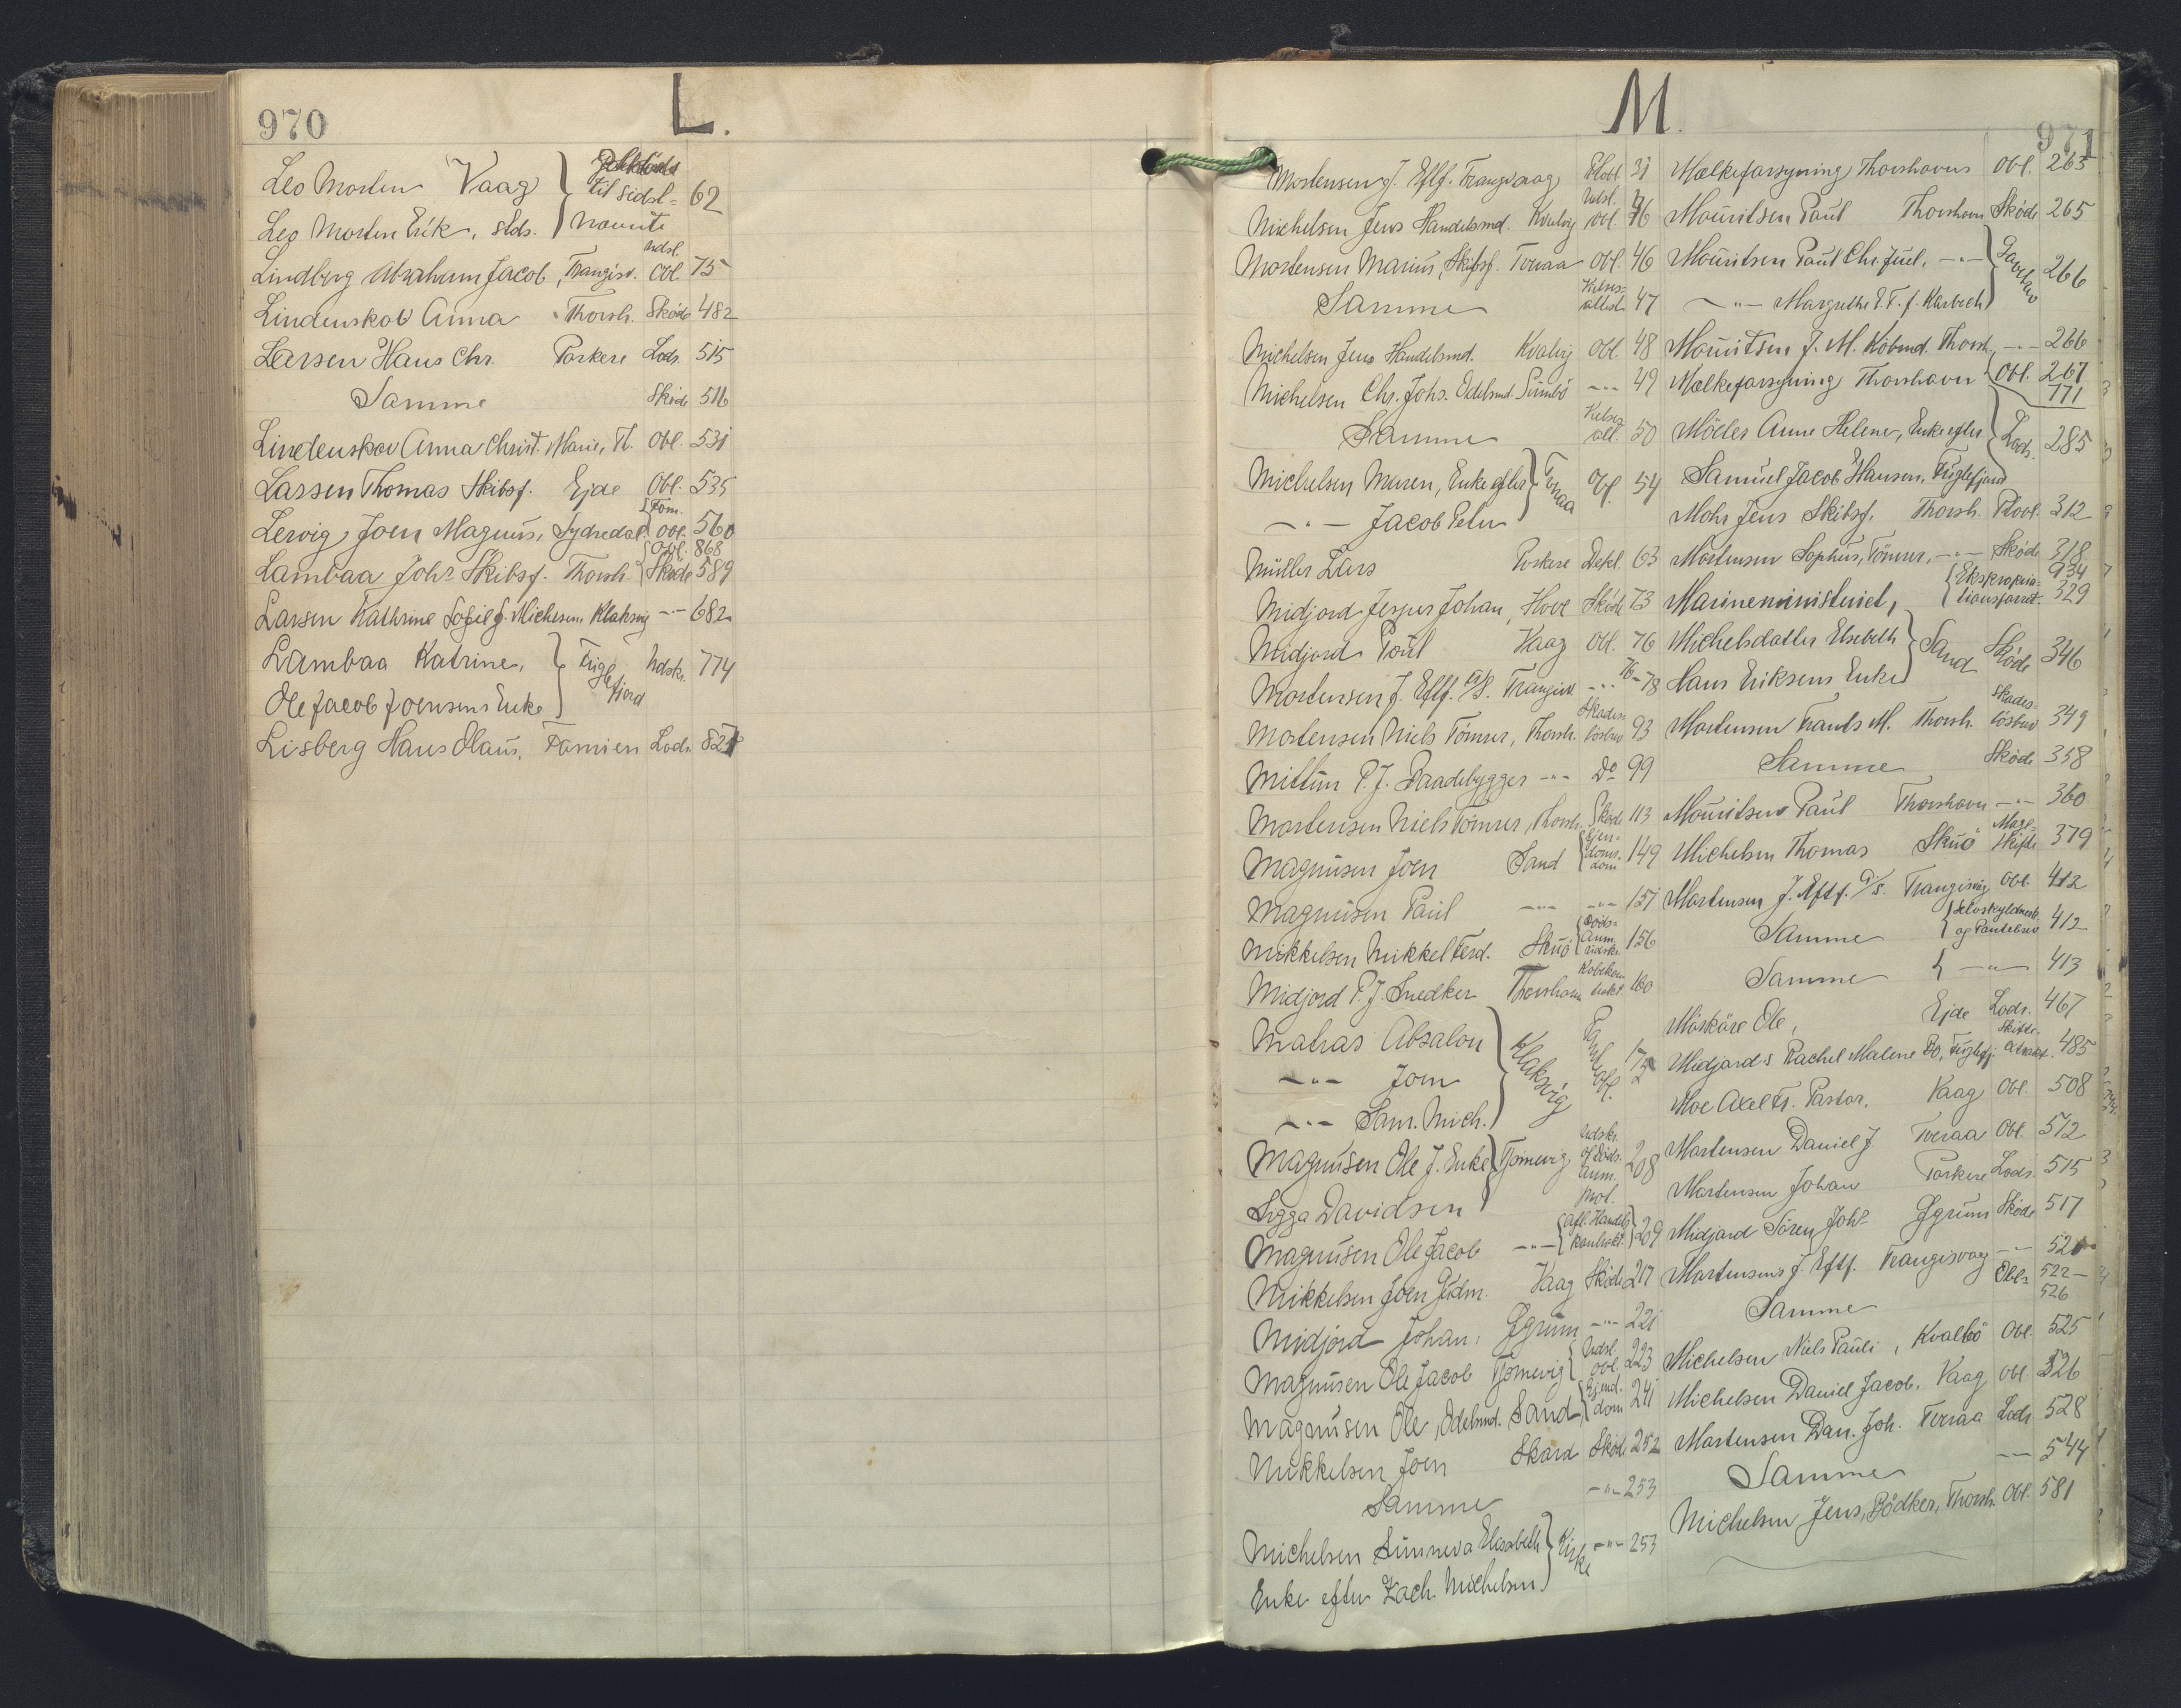 970
L.
Leo Morten Vaag } til sidst- 62
Leo Morten Erik, stds. } nævnte
Lindberg Abraham Jacob, Trangisv. Udsl. Obl. 75
Lindenskov Anna Thorsh. Sköde 482
Larsen Hans Chr. Porkere Lods. 515
Samme Sköde 516
Lindenskov Anna Christ. Marie, Th. Obl. 531
Lassen Thomas Skibsf. Ejde Obl. 535
Lervig Joen Magnus, Sydredal. { Tom. Obl. 560
Lambaa Johs Skibsf. Thorsh. { Obl. 868 Sköde 589
Larsen Kathrine Sofie g. Michelsen, Klaksvig -"- 682
Lambaa Katrine, } Fuglefjord Udskr. 774
Ole Jacob Joensens Enke }
Lisberg Hans Olaus, Famien Lods. 827
M.
971
Mortensen J. Eftf. Trangisvaag 31
Michelsen Jens Handelsmd. Kvalvig Udsl. Obl. 46
Mortensen Marius, Skibsf. Tveraa Obl. 46
Samme 47
Michelsen Jens Handelsmd. Kvalvig Obl. 48
Michelsen Chr. Johs. Odelsmd. Sumbö -"- 49
Samme 50
Michelsen Maren, Enke efter } Tveraa Obl. 54
-"- Jacob Peter }
Müller Lars Porkere Dekl. 63
Midjord Jesper Johan, Hove Sköde 73
Midjord Poul Vaag Obl. 76
Mortensen J. Eftf. A/S. Trangisv. -"- 76-78
Mortensen Niels Tömrer, Thorsh. Skadeslösbrev 93
Mittun P. J. Baadebygger -"- Do 99
Mortensen Niels Tömrer, Thorsh. Sköde 113
Magnusen Joen Sand { Ejendomsdom 149
Magnusen Paul -"- -"- 151
Mikkelsen Mikkel Ferd. Skuö { Döds-Anm. Udskr. 156
Midjord P. J. Snedker Thorshavn Købekontrakt 160
Matras Absalon } Klaksvig 175
-"- Joen }
-"- Sam. Mich. }
Magnusen Ole J. Enke } Tjörnevig Udskr. af Döds-Anm. Prot. 208
Sigga Davidsen }
Magnusen Ole Jacob -"- { Afl. Handels Kontrakt } 209
Mikkelsen Joen Gudm. Vaag Sköde 217
Midjord Johan, Ggrum -"- 221
Magnusen Ole Jacob Tjörnevig { Udsl. Obl. 223
Magnusen Ole, Odelsmd. Sand { Ejend. dom 241
Mikkelsen Joen Skard Sköde 252
Samme -"- 253
Michelsen Sunneva Elesabeth } Kirke -"- 253
Enke efter Zach. Michelsen }
Mælkeforsyning Thorshavns Obl. 263
Mouritsen Paul Thorshavn Sköde 265
Mouritsen Paul Chr. Juel, -"- } 266
-"- Margrethe E. F. f. Karbech }
Mouritsen J. M. Köbmd. Thorsh. -"- 266
Mælkeforsyning Thorshavn { Obl. 267 771
Möller Anne Helene, Enke efter } Lods. 285
Samuel Jacob Hansen, Fuglefjord }
Mohr Jens Skibsf. Thorsh. 312
Mortensen Sophus, Tömrer, -"- Sköde 318
Marineministeriet, { Ekspropriationsforret. 934 329
Michelsdatter Elsebeth } Sand Sköde 346
Hans Eriksens Enke }
Mortensen Frants M. Thorsh. Skadeslösbrev 349
Samme Sköde 358
Mouritsen Paul Thorshavn -"- 360
Michelsen Thomas Skuö Mageskifte 379
Mortensen J. Eftf. A/S. Trangisvaag Obl. 412
Samme { Selvskyldnerk. og Pantebrev 412
Samme { -"- 413
Mörköre Ole, Ejde Lods. 467
Midjord's Rachel Malene Bo, Fuglefj. Skifte. 485
Moe Axel Fr. Pastor. Vaag Obl. 508
Mortensen Daniel J. Tveraa Obl. 512
Mortensen Johan Porkere Lods. 515
Midjord Sören Johs Ggrum Sköde 517
Mortensens J. Eftf. Trangisvaag -"- 520
Samme Obl. 522-526
Michelsen Niels Pauli, Kvalbö Obl. 525
Michelsen Daniel Jacob, Vaag Obl. 526
Mortensen Dan. Joh. Tveraa Lods. 528
Samme -"- 544
Michelsen Jens, Bödker, Thorsh. Obl. 581